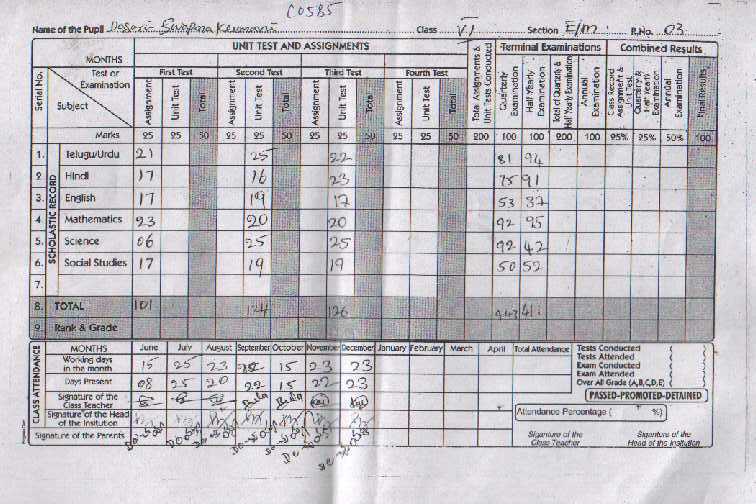 C0585
Name of the Pupil Dasari Swapna Kumari Class VI Section E/m R.No. 03
UNIT TEST AND ASSIGNMENTS Total Assignments & Unit Tests Conducted Terminal Examinations Combined Results
MONTHS
Serial No. Test or Examination Subject First Test Second Test Third Test Fourth Test
Assignment Unit Test Total Assignment Unit Test Total Assignment Unit Test Total Assignment Unit Test Total Quarterly Examination Half Yearly Examination Total of Quarterly & Half Yearly Examination Annual Examination Class Record Assignment & Unit Test Quarterly & Half Yearly Examination Annual Examination Final Results
Marks 25 25 50 25 25 50 25 25 50 25 25 50 200 100 100 200 100 25% 25% 50% 100
SCHOLASTIC RECORD
1. Telugu/Urdu 21 25 22 81 94
2 Hindi 17 16 23 75 91
3. English 17 19 17 53 37
4. Mathematics 23 20 20 92 95
5. Science 06 25 25 92 42
6. Social Studies 17 19 19 50 52
7.
8. TOTAL 101 124 126
9. Rank & Grade
CLASS ATTENDANCE
MONTHS June July August September October November December January February March April Total Attendance
Working days in the month 15 25 23 22 15 23 23
Days Present 08 25 20 22 15 22 23
Signature of the Class Teacher
Signature of the Head of the Insitution
Signature of the Parents
Tests Conducted ( )
Tests Attended ( )
Exam Conducted ( )
Exam Attended ( )
Over All Grade (A,B,C,D,E) ( )
PASSED-PROMOTED-DETAINED
Attendance Percentage ( %)
Signature of the Class Teacher Signature of the Head of the Insitution